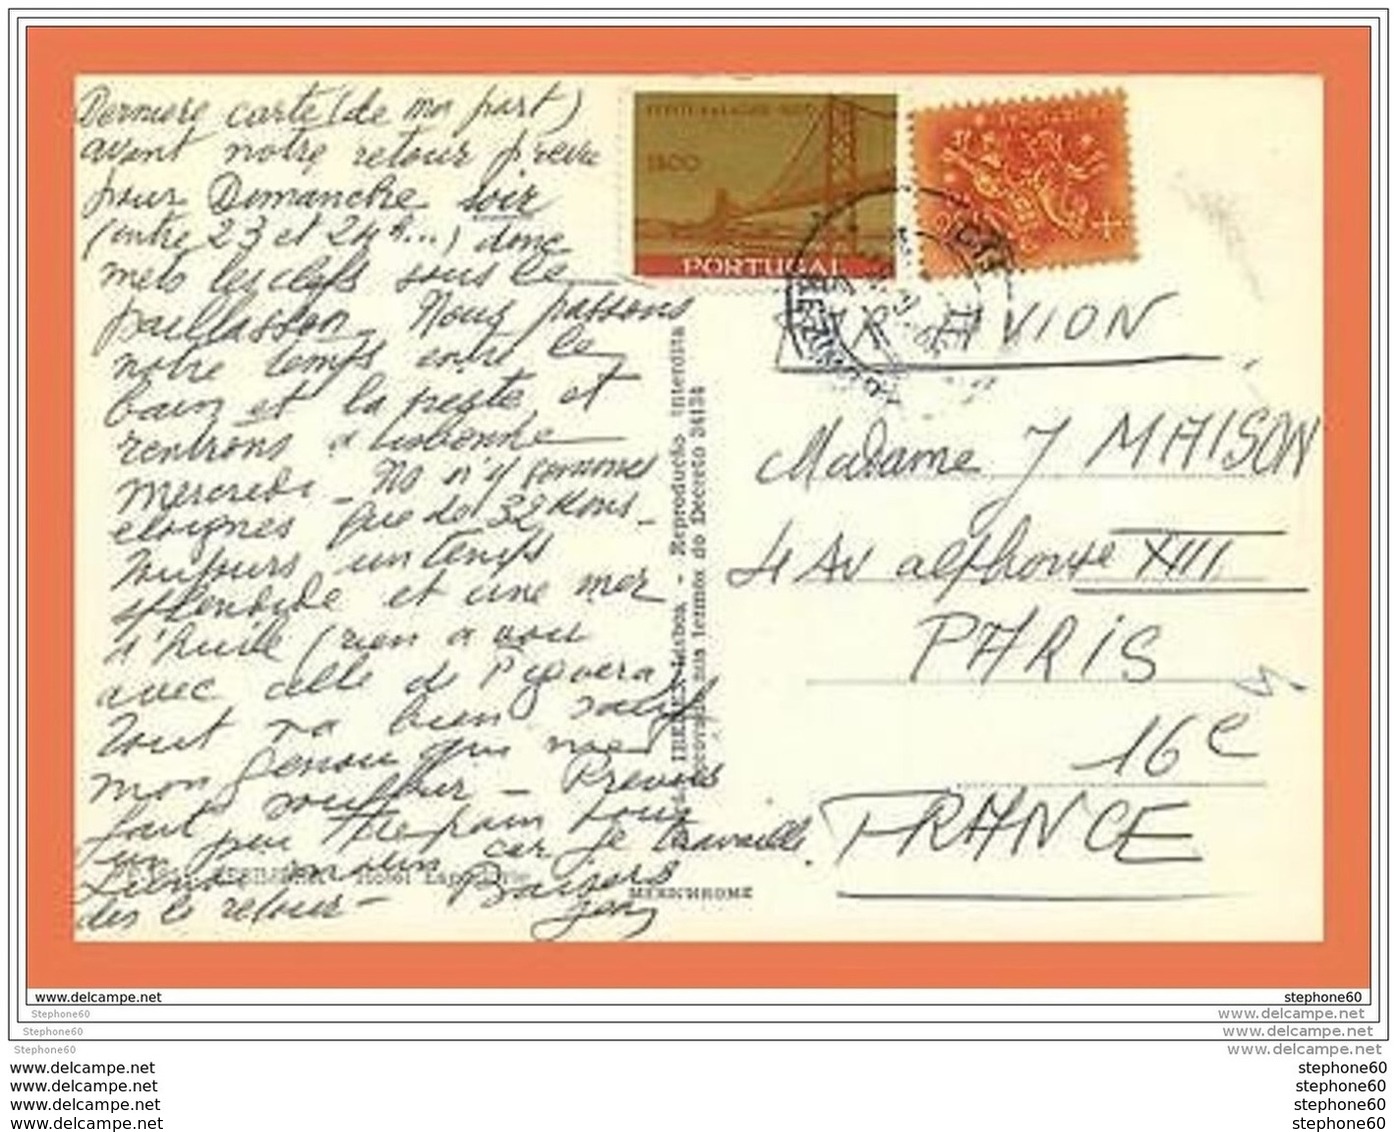 Derniere carte (de ma part)
avant notre retour prevu
pour Dimanche soir
(entre 23 et 24h...) donc
mets les clefs sous le
paillasson. Nous passons
notre temps entre le
bain et la peste et
rentrons a Lisbonne
mercredi - No n'y sommes
eloignes que de 32 Kms -
Toujours un temps
splendide et une mer
d'huile (rien a voir
avec celle de
Tout va bien sauf
mon genou qui me
fait souffrir - Prevois
un peu de pain pour
Lundi matin car je travaille.
des le retour - Baisers
Jean
Hotel
MEXICHROME
Lisboa. - Reprodução interdita
nos termos do Decreto 34134
1$00
PORTUGAL
PAR AVION
Madame J MAISON
4 Av alphonse XIII
PARIS
16e
FRANCE
www.delcampe.net
stephone60
Stephone60
www.delcampe.net
Stephone60
www.delcampe.net
Stephone60
www.delcampe.net
www.delcampe.net
stephone60
www.delcampe.net
stephone60
www.delcampe.net
stephone60
www.delcampe.net
stephone60